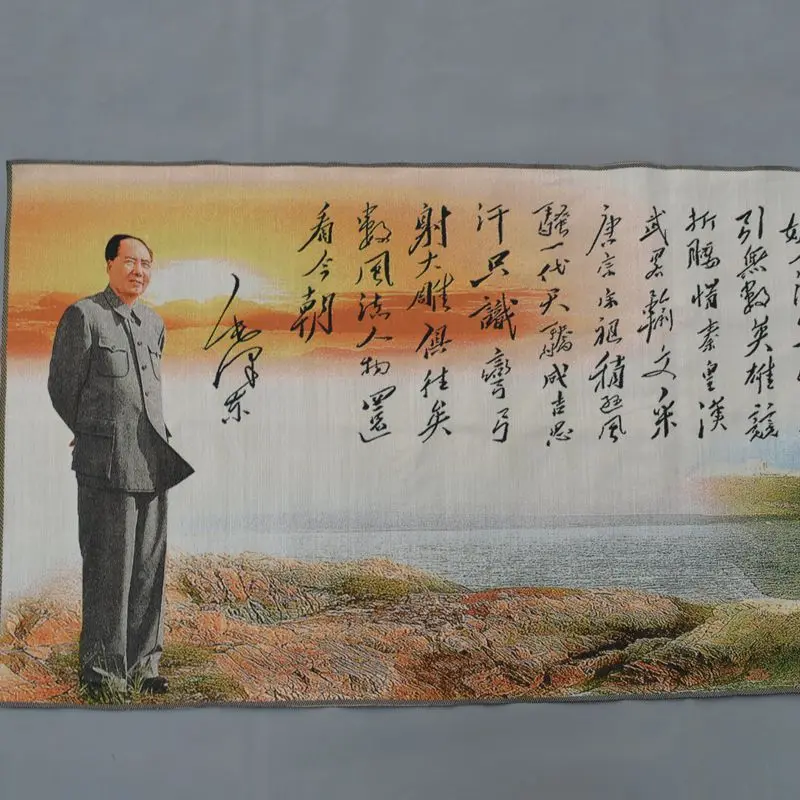 引無數英雄競
折腰惜秦皇漢
武畧輸文采
唐宗宋祖稍遜風
騷一代天驕成吉思
汗只識彎弓
射大雕俱往矣
數風流人物還
看今朝
毛泽东